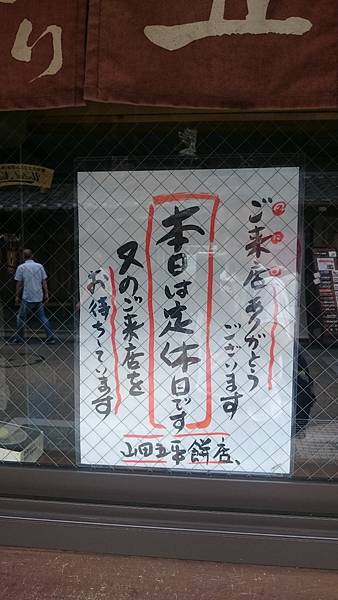 り
ご来店ありがとう
ございます
本日は定休日です
又のご来店を
お待ちています
山田五平餅店、